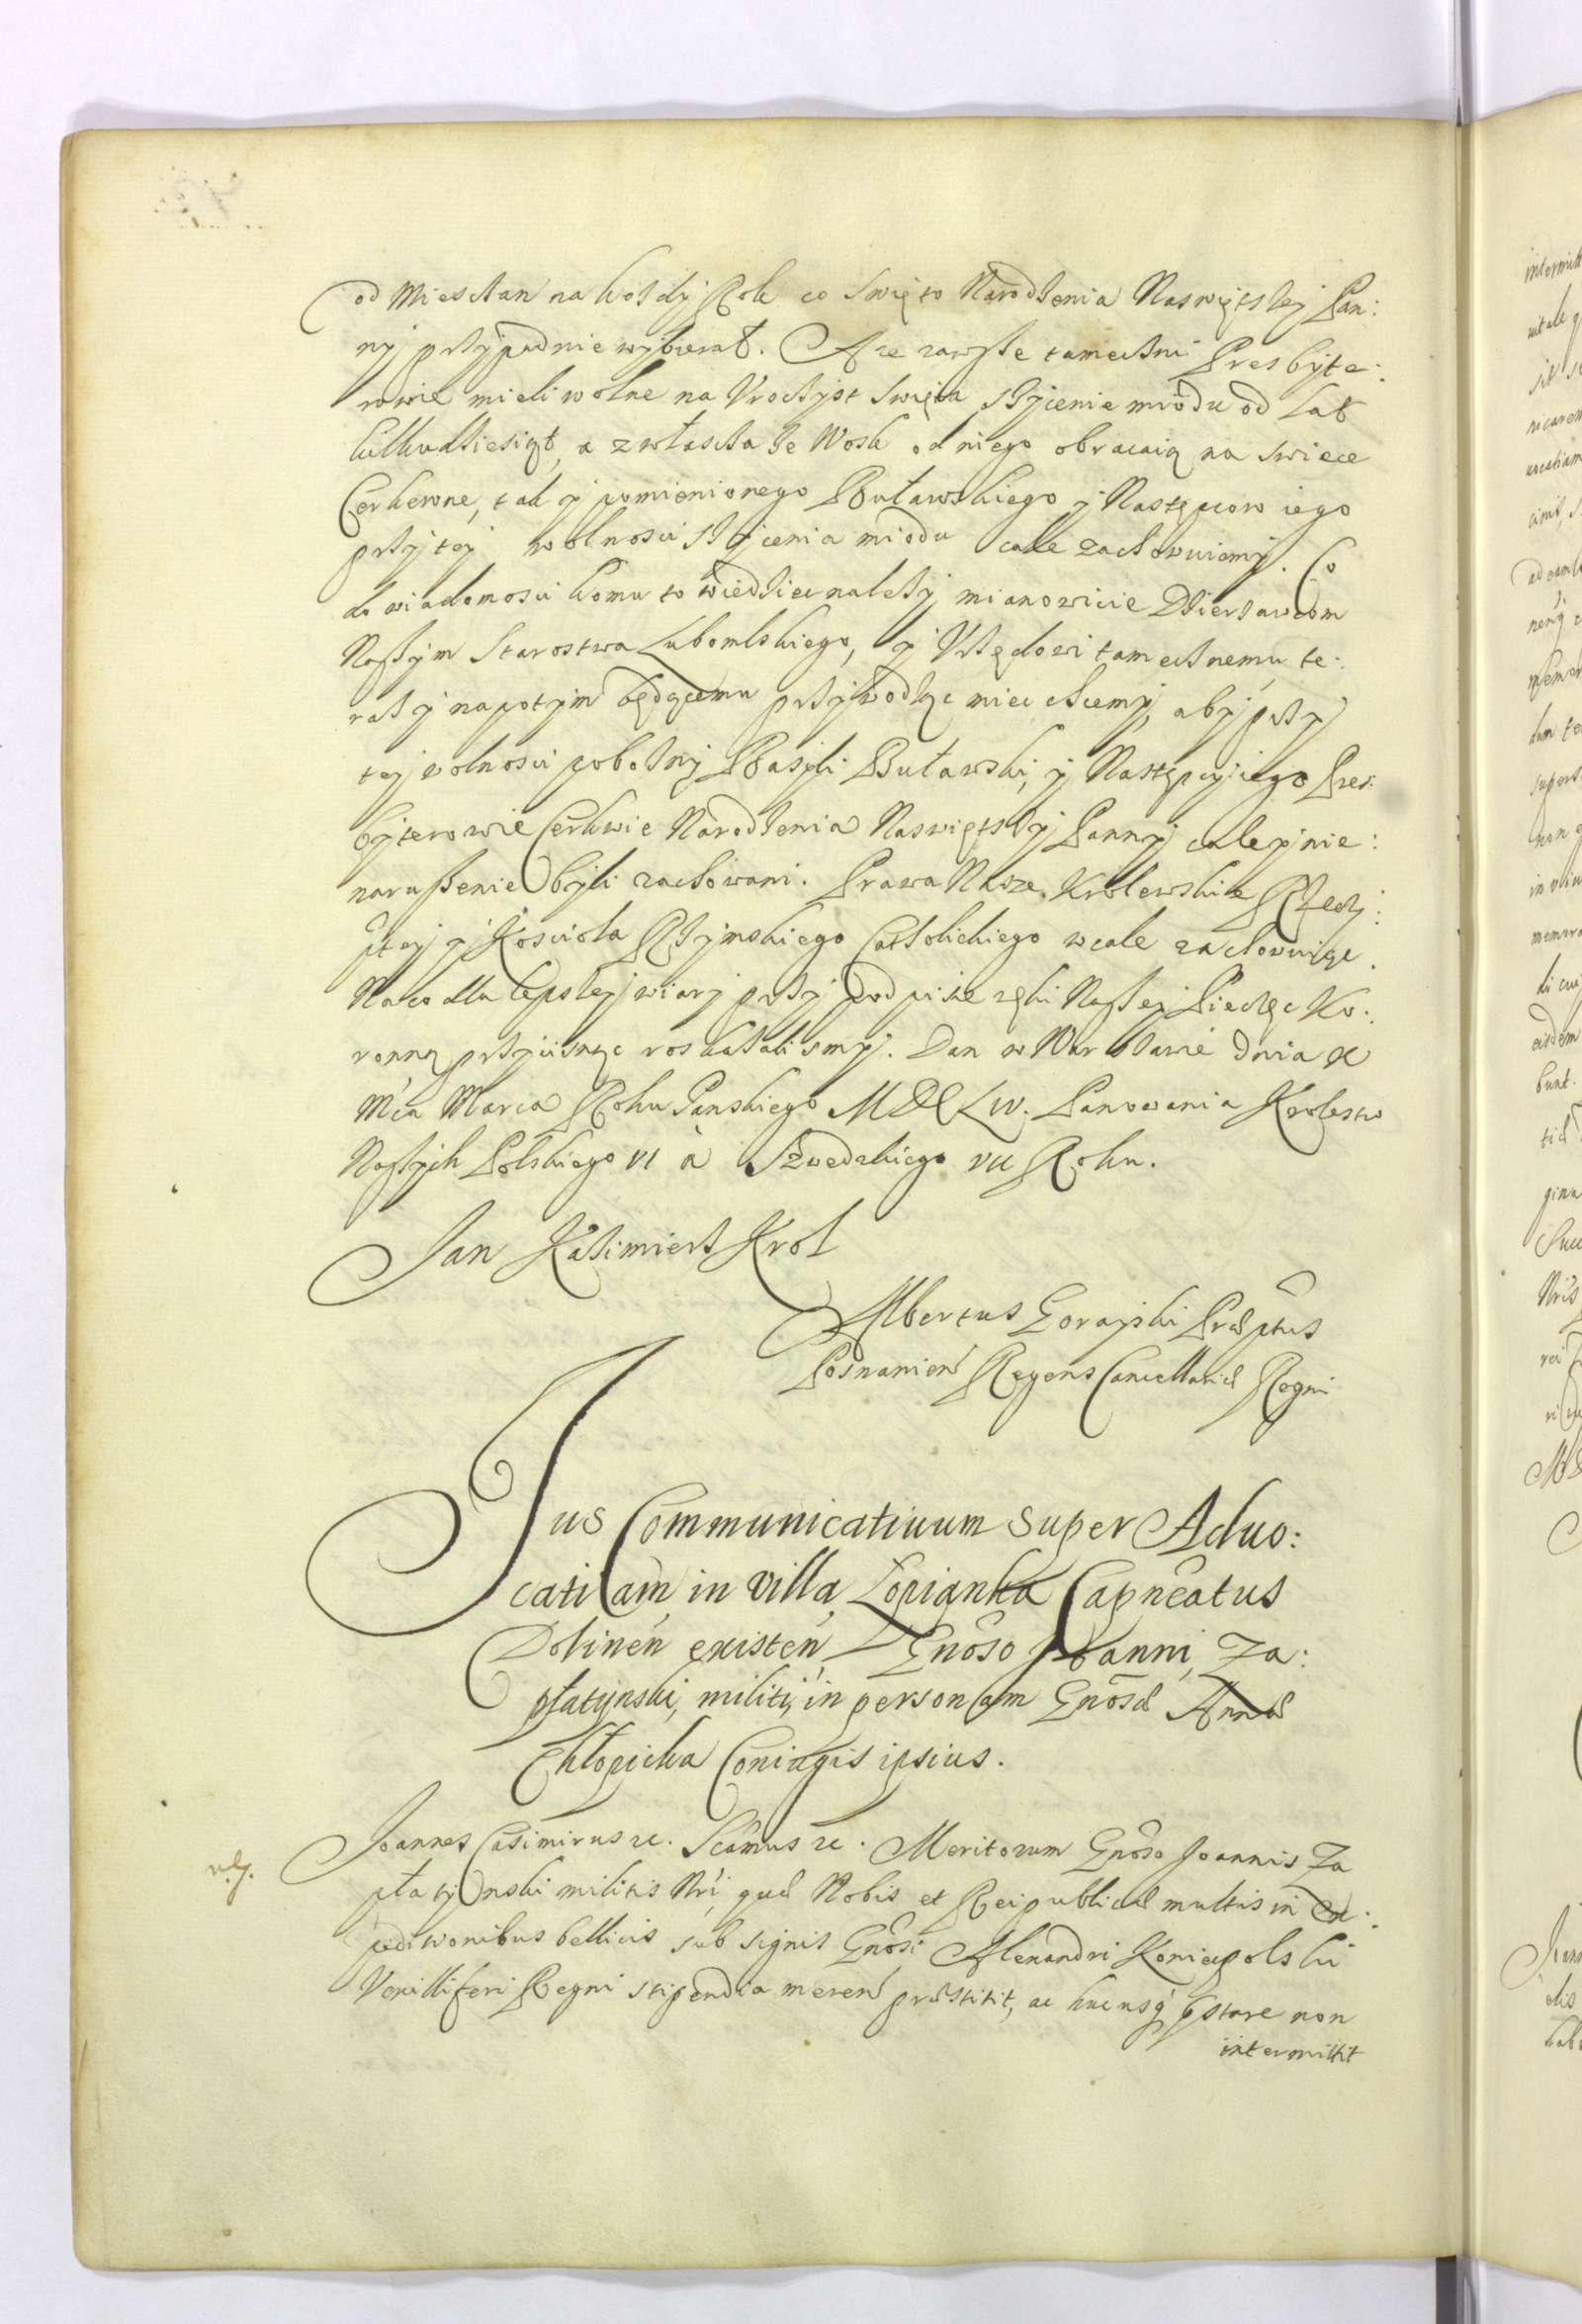 od Mieszczan na kożdy Rok co Swięto Narodzenia Naswiętszey Pan:
ny przypadnie wybierał. A ze zawsze tameczni Presbyte:
rowie mieli wolne na Vroczyst Swięta Syczenie miodu od Lat
kilkudziesiąt, a zwłaszcza że Wosk od niego obracaią na swiece
Cerkiewne, tak y pomienionego Buławskiego y Nastęmcow iego
przy tey wolnosci syczenia miodu cale zachowuiemy. Co
do wiadomosci komu to wiedziec nalezy mianowicie Dzierzawcom
Naszym Starostwa Lubomlskiego, y Vrzędowi tamecznemu te:
raz y napotym będącemu przywodząc miec chcemy, aby przy
tey wolnosci pobożny Basyli Buławski, y Następcy iego Pres:
byterowie Cerkwie Narodzenia Naswiętszy Panny cale y nie:
naruszenie byli zachowani. Prawa Nasze Krolewskie Rzeczy:
ptey y Kosciola Rzymskiego Catholickiego wcale zachowuiąc.
Na co dla lepszey wiary przy podpisie ręki Naszey Pieczęc Ko:
ronną przycisnąc roskazalismy. Dan w Warszawie dnia X
Mca Marca Roku Panskiego MDCLIV. Panowania Krolestw
Naszych Polskiego VI a Szwedzkiego VII Roku.
Jan Kazimierz Krol
Albertus Gorayski Præptus
Posnanien Regens Cancellariæ Regni
Jus Communicatiuum super Aduo:
catiam in villa Łopianka Capneatus
Dolinen existen Gnoso Joanni Za:
płatynski, militi, in personam Gnosæ Annæ
Chłopicka Coniugis ipsius.
Joannes Casimirus etc. Scamus etc. Meritorum Gnoso Joannis Za
płatynski militis Nri, quæ Nobis et Reipublicæ multis in Ex:
peditionibus bellicis sub signis Gnosi Alexandri Koniecpolski
Vexilliferi Regni stipendia meren præstitit, ac hucusq pstare non
intermittit